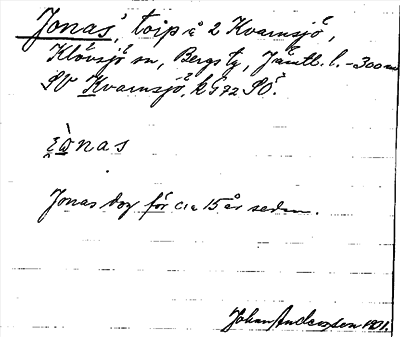 Jonas', torp å 2 Kvarnsjö,
Klövsjö sn, Bergs tg, Jämtl. l. -300 m
SV Kvarnsjö,
nas
Jonas dog för c:a 15 år sedan.
Johan Andersson 1921.